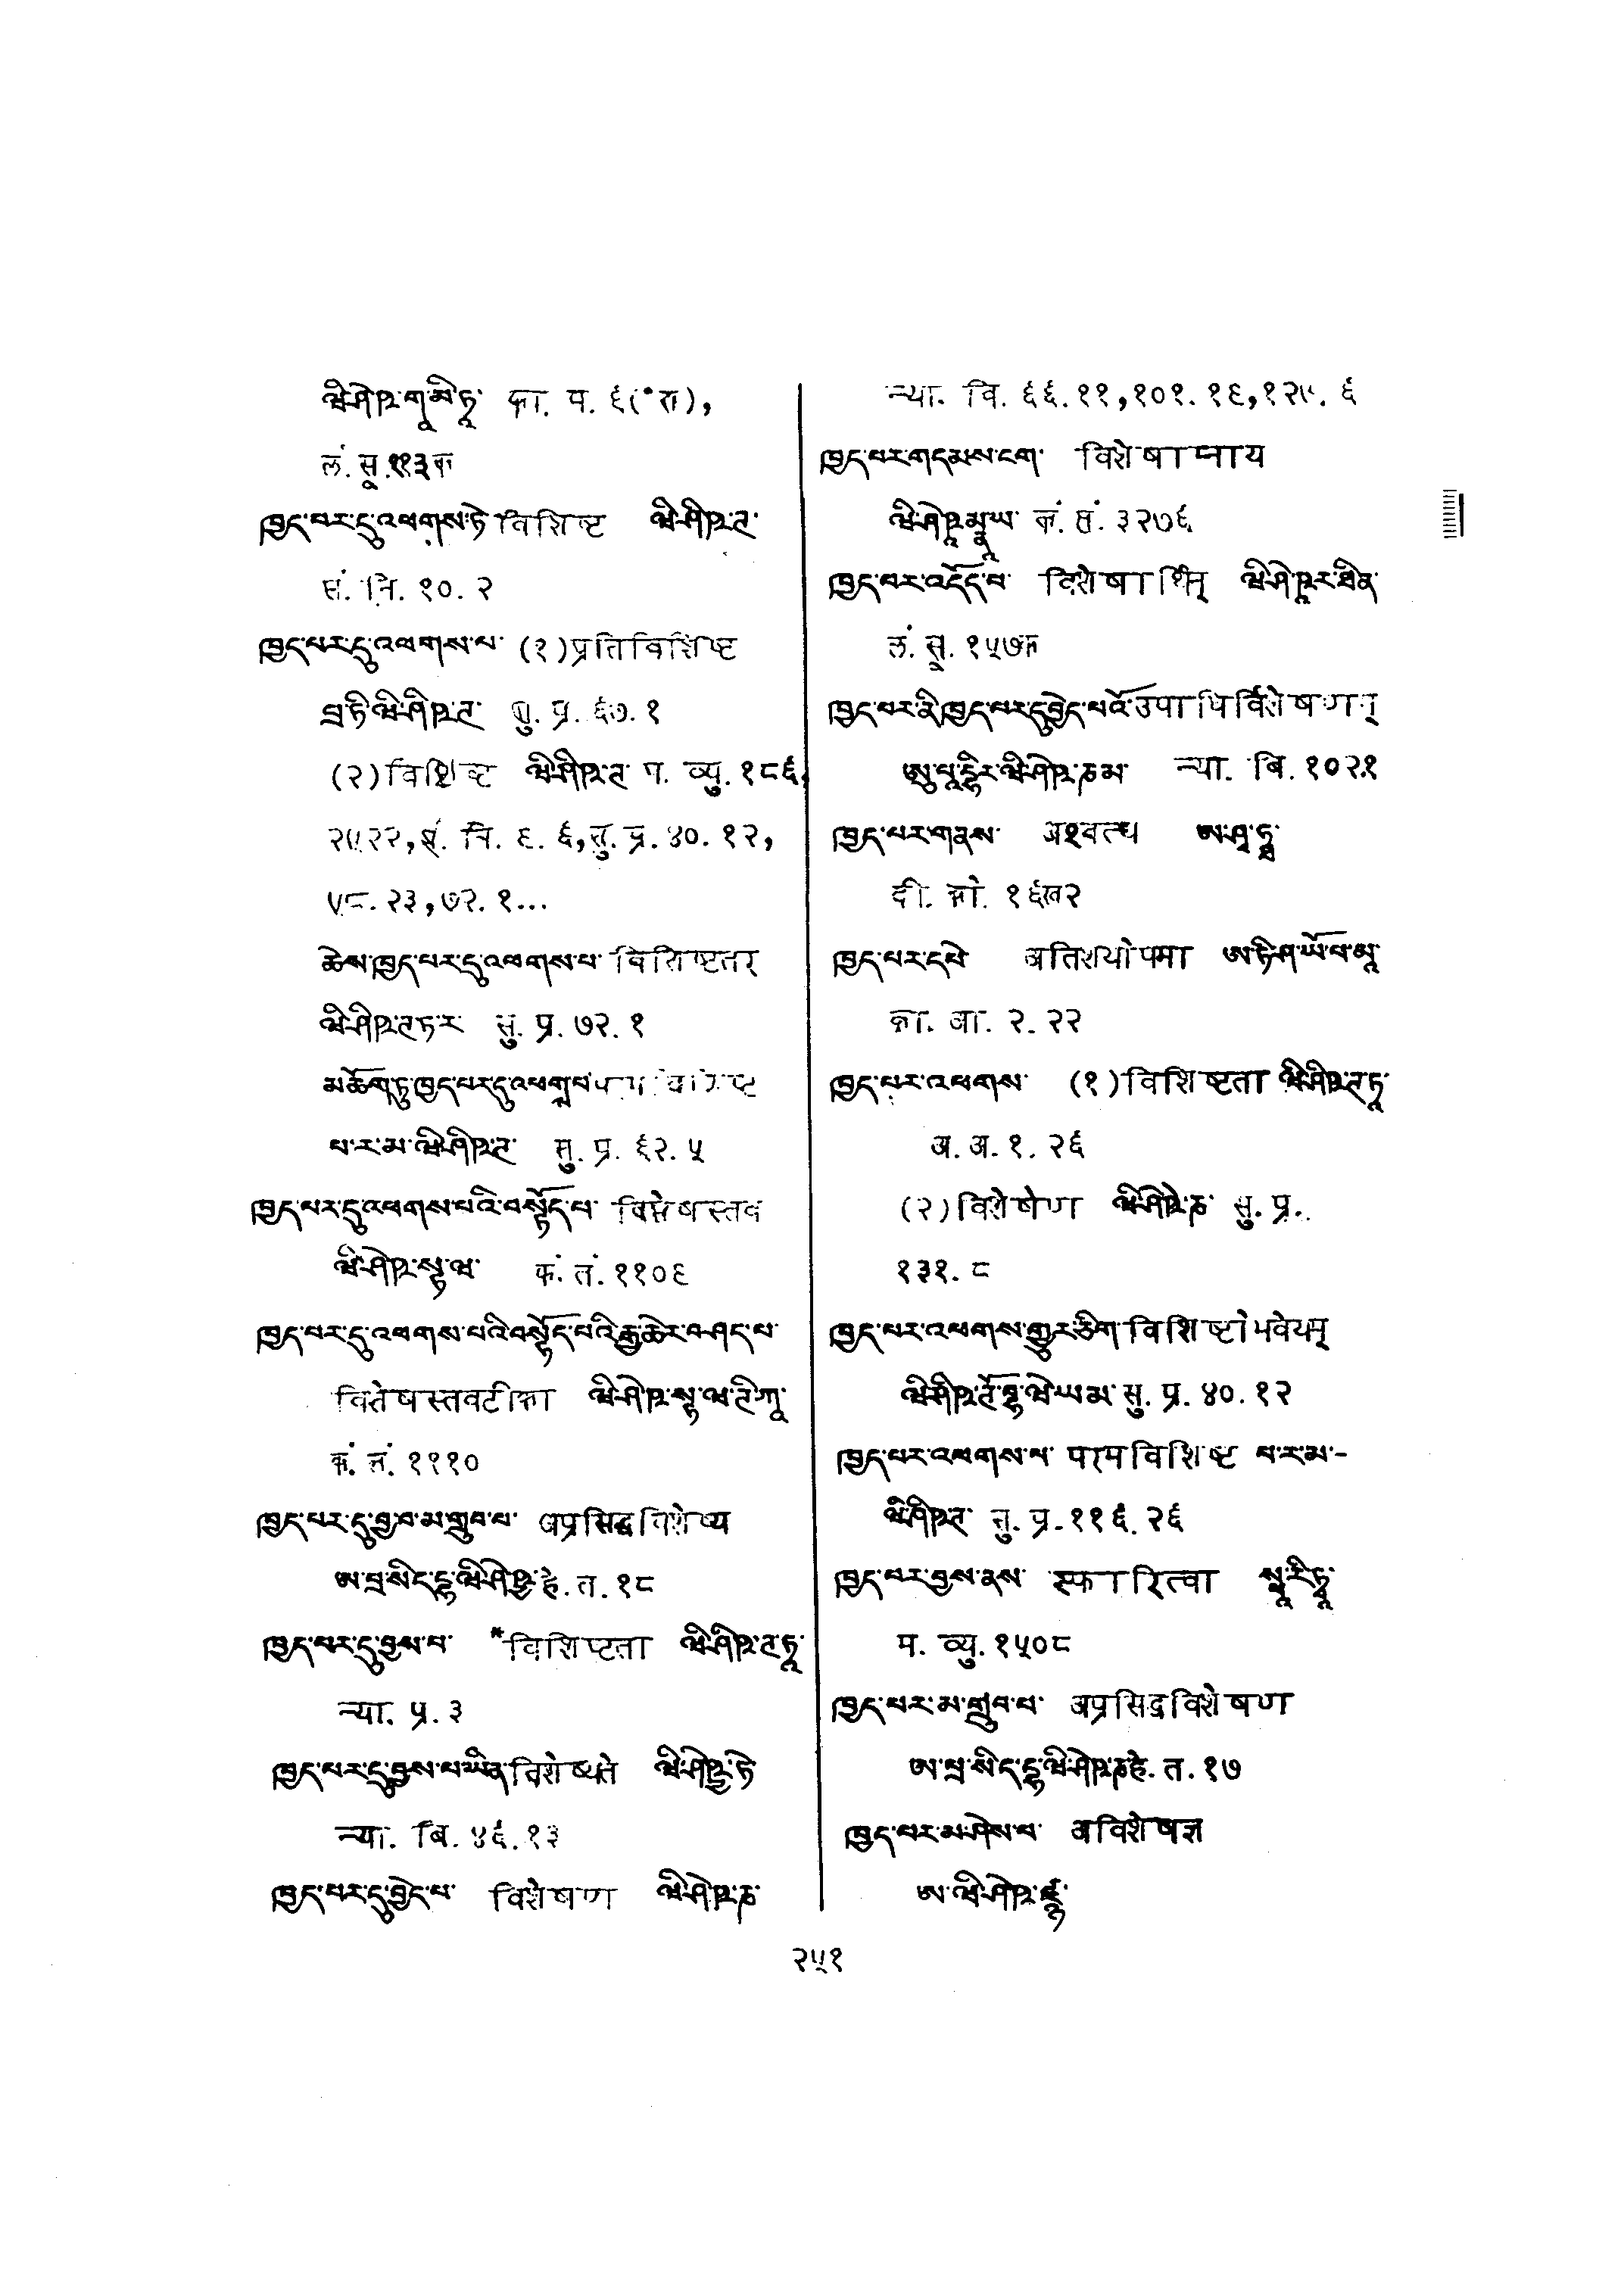 ཝི་ཤེ་ཥ་གཱ་མི་ཏཱ་ का. प. ६(॰त),
लं. सू. ११३क
ཁྱད་པར་དུ་འཕགས་ཏེ་ विशिष्ट ཝི་ཤི་ཥྚ་
सं. नि. १०. २
ཁྱད་པར་དུ་འཕགས་པ་ (१)प्रतिविशिष्ट
པྲ་ཏི་ཝི་ཤི་ཥྚ་ सु. प्र. ६७. १
(२)विशिष्ट ཝི་ཤི་ཥྚ་ प. व्यु. १८६,
२५२२, सं. नि. ९. ६, सु. प्र. ४०. १२,
५८. २३, ७२. १...
ཆེས་ཁྱད་པར་དུ་འཕགས་པ་ विशिष्टतर
ཝི་ཤི་ཥྚ་ཏ་ར་ सु. प्र. ७२. १
མཆོག་ཏུ་ཁྱད་པར་དུ་འཕགས་པ་ परमविशिष्ट
པ་ར་མ་ཝི་ཤི་ཥྚ་ सु. प्र. ६२. ५
ཁྱད་པར་དུ་འཕགས་པའི་བསྟོད་པ་ विशेषस्तव
ཝི་ཤེ་ཥ་སྟ་ཝ་ कं. तं. ११०९
ཁྱད་པར་དུ་འཕགས་པའི་བསྟོད་པའི་རྒྱ་ཆེར་བཤད་པ་
विशेषस्तवटीका ཝི་ཤེ་ཥ་སྟ་ཝ་ཊཱི་ཀཱ་
कं. तं. १११०
ཁྱད་པར་དུ་བྱ་བ་མ་གྲུབ་པ་ अप्रसिद्धविशेष्य
ཨ་པྲ་སིད་དྷ་ཝི་ཤེ་ཥྱ་ हे. त. १८
ཁྱད་པར་དུ་བྱས་པ་ *विशिष्टता ཝི་ཤི་ཥྚ་ཏཱ་
न्या. प्र. ३
ཁྱད་པར་དུ་བྱས་པ་ཡིན་ विशेष्यते ཝི་ཤེ་ཥྱ་ཏེ
न्या. बि. ४६. १३
ཁྱད་པར་དུ་བྱེད་པ་ विशेषण ཝི་ཤེ་ཥ་ཎ་
न्या. बि. ६६. ११, १०१. १९, १२५. ६
ཁྱད་པར་གདམས་ངག་ विशेषाम्नाय
ཝི་ཤེ་ཥཱ་མྣཱ་ཡ་ कं. तं. ३२७६
ཁྱད་པར་འདོད་པ་ विशेषार्थिन् ཝི་ཤེ་ཥཱ་ར་ཐིན་
लं. सू. १५७क
ཁྱད་པར་ནི་ཁྱད་པར་དུ་བྱེད་པའོ་ उपाधिर्विशेषणम्
ཨུ་པཱ་དྷིར་ཝི་ཤེ་ཥ་ཎམ་ न्या. बि. १०२.१
ཁྱད་པར་གནས་ अश्वत्थ ཨ་ཤྭ་ཏྠ་
दी. को. १६ख२
ཁྱད་པར་དཔེ अतिशयोपमा ཨ་ཏི་ཤ་ཡོ་པ་མཱ་
का. आ. २. २२
ཁྱད་པར་འཕགས་ (१)विशिष्टता ཝི་ཤི་ཥྚ་ཏཱ་
अ. अ. १. २६
(२)विशेषेण ཝི་ཤེ་ཥེ་ཎ་ सु. प्र.
१३१. ८
ཁྱད་པར་འཕགས་གྱུར་ཅིག་ विशिष्टो भवेयम्
ཝི་ཤི་ཥྚོ་བྷ་ཝེ་ཡམ་ सु. प्र. ४०. १२
ཁྱད་པར་འཕགས་པ་ परमविशिष्ट པ་ར་མ་-
ཝི་ཤི་ཥྚ་ सु. प्र. ११६. २६
ཁྱད་པར་བྱས་ནས་ स्फारित्वा སྥཱ་རི་ཏྭཱ་
प. व्यु. १५०८
ཁྱད་པར་མ་གྲུབ་པ་ अप्रसिद्धविशेषण
ཨ་པྲ་སིད་དྷ་ཝི་ཤེ་ཥ་ཎ हे. त. १७
ཁྱད་པར་མ་ཤེས་པ་ अविशेषज्ञ
ཨ་ཝི་ཤེ་ཥ་ཛྙ་
२५१